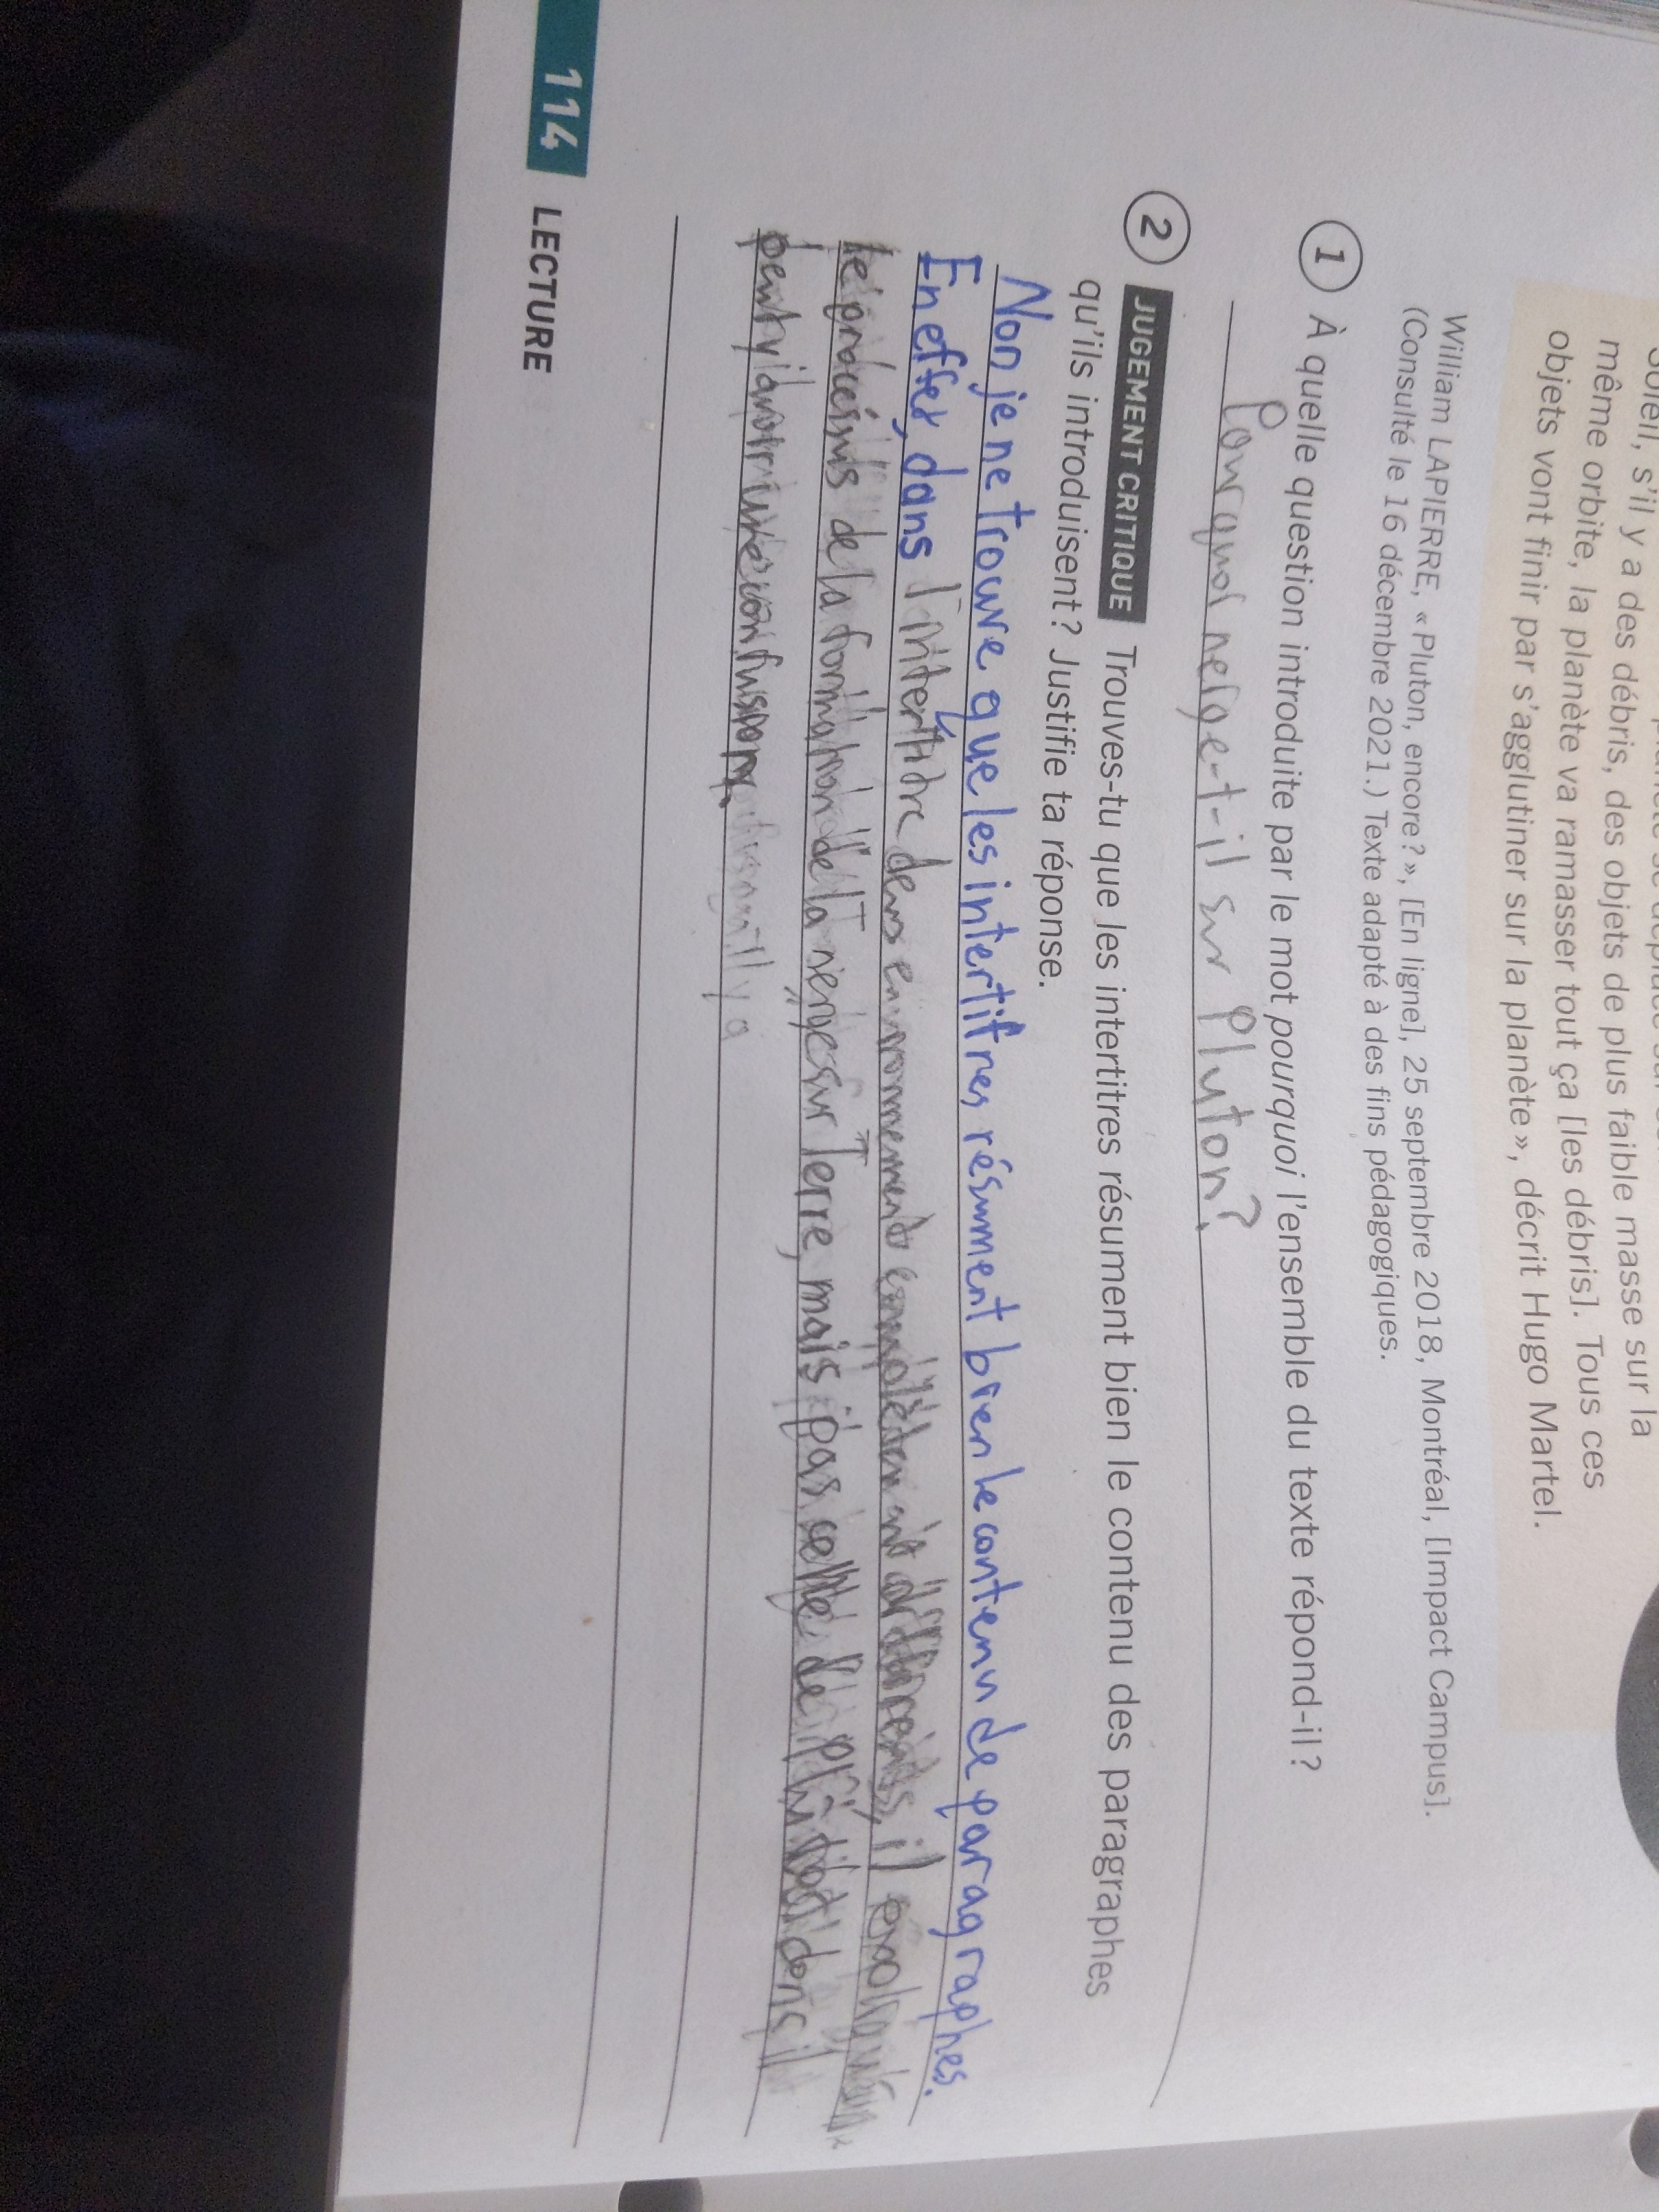 même orbite, la planète va ramasser tout ça [les débris]. Tous ces
objets vont finir par s'agglutiner sur la planète», décrit Hugo Martel.
William LAPIERRE, «Pluton, encore?», [En ligne], 25 septembre 2018, Montréal, [Impact Campus].
(Consulté le 16 décembre 2021.) Texte adapté à des fins pédagogiques.
1 À quelle question introduite par le mot pourquoi l'ensemble du texte répond-il?
Pourquoi neige-t-il sur Pluton?
2 JUGEMENT CRITIQUE Trouves-tu que les intertitres résument bien le contenu des paragraphes
qu'ils introduisent? Justifie ta réponse.
Non je ne trouve que les intertitres résument bien le contenu de paragraphes.
En effet, dans l'intertitre deux environnements différents, il
de la formation de la neige sur Terre, mais pas celle de donc il
peut y avoir une confusion.
il y a
114 LECTURE